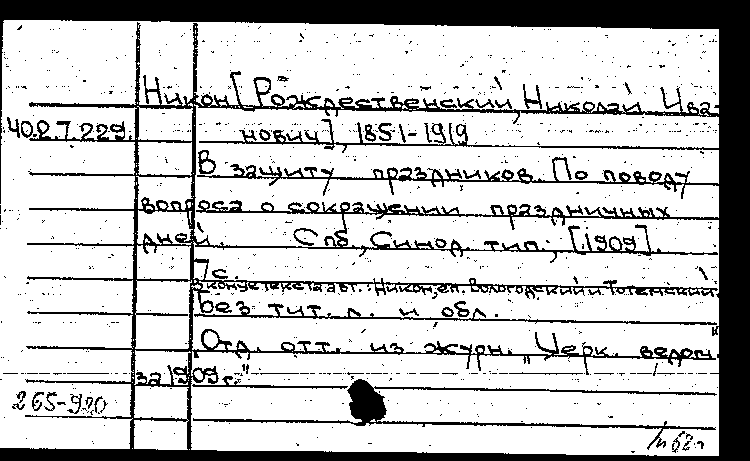 Никон [Рождественский, Николай Ива-
40.2.7.229. нович], 1851-1919
В защиту праздников. По поводу
вопроса о сокращении праздничных
дней. Спб., Синод. тип., [1909].
7 с.
В конце текста авт.: Никон, еп. Вологодский и Тотемский.
Без тит. л. и обл.
Отд. отт. из журн. "Церк. ведом."
за 1909 г."
265-920